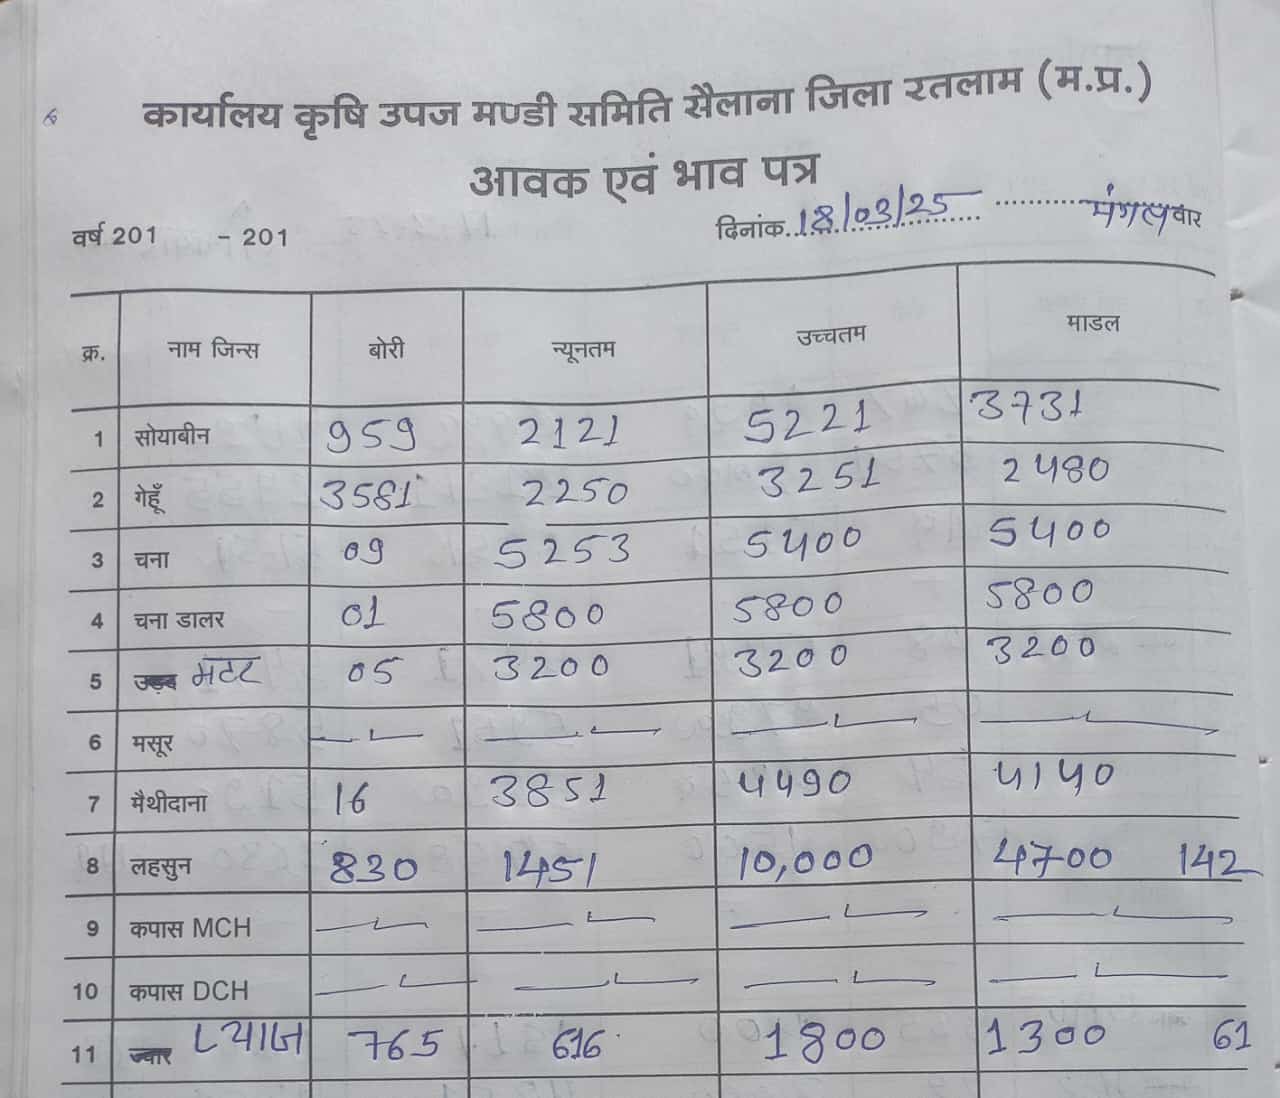 कार्यालय कृषि उपज मण्डी समिति सैलाना जिला रतलाम (म.प्र.)
आवक एवं भाव पत्र
वर्ष 201 - 201 दिनांक 18/03/25 मंगलवार
क्र. नाम जिन्स बोरी न्यूनतम उच्चतम माडल
1 सोयाबीन 959 2121 5221 3731
2 गेहूँ 3581 2250 3251 2480
3 चना 09 5253 5400 5400
4 चना डालर 01 5800 5800 5800
5 उड़द मटर 05 3200 3200 3200
6 मसूर
7 मैथीदाना 16 3851 4490 4140
8 लहसुन 830 1451 10,000 4700 142
9 कपास MCH
10 कपास DCH
11 ज्वार प्याज 765 616 1800 1300 61